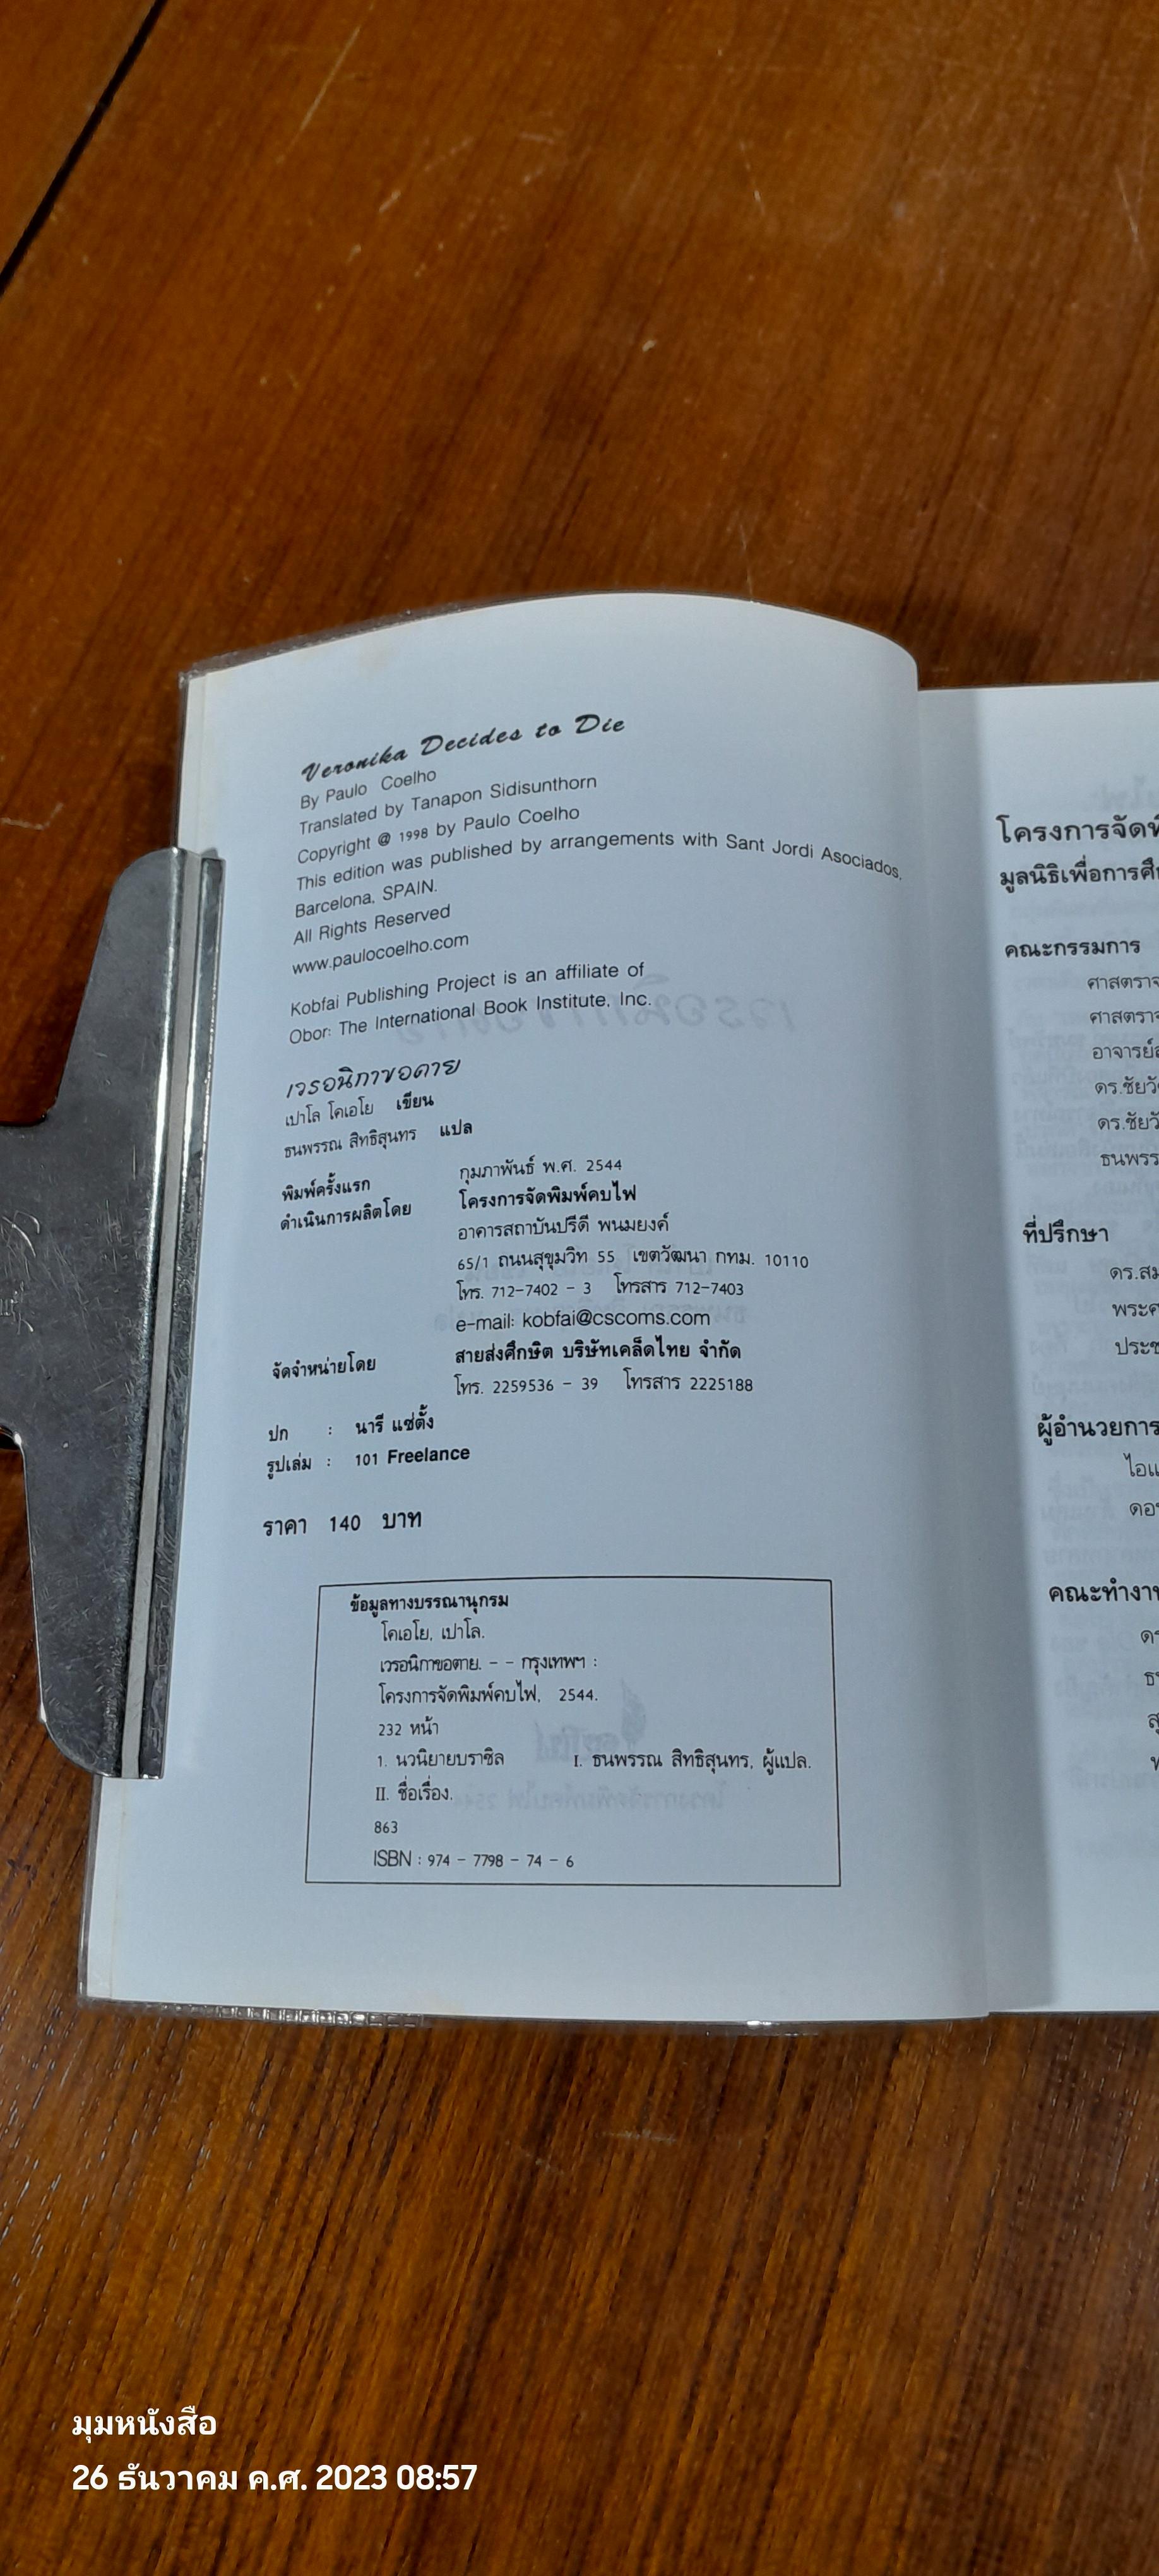 Veronika Decides to Die
By Paulo Coelho
Translated by Tanapon Sidisunthorn
Copyright @ 1998 by Paulo Coelho
This edition was published by arrangements with Sant Jordi Asociados,
Barcelona, SPAIN.
All Rights Reserved
www.paulocoelho.com
Kobfai Publishing Project is an affiliate of
Obor: The International Book Institute, Inc.
เวรอนิกาขอตาย
เปาโล โคเอโย เขียน
ธนพรรณ สิทธิสุนทร แปล
พิมพ์ครั้งแรก กุมภาพันธ์ พ.ศ. 2544
ดำเนินการผลิตโดย โครงการจัดพิมพ์คบไฟ
อาคารสถาบันปรีดี พนมยงค์
65/1 ถนนสุขุมวิท 55 เขตวัฒนา กทม. 10110
โทร. 712-7402 - 3 โทรสาร 712-7403
e-mail: kobfai@cscoms.com
จัดจำหน่ายโดย สายส่งศึกษิต บริษัทเคล็ดไทย จำกัด
โทร. 2259536 - 39 โทรสาร 2225188
ปก : นารี แซ่ตั้ง
รูปเล่ม : 101 Freelance
ราคา 140 บาท
ข้อมูลทางบรรณานุกรม
โคเอโย, เปาโล.
เวรอนิกาขอตาย. - - กรุงเทพฯ :
โครงการจัดพิมพ์คบไฟ, 2544.
232 หน้า
1. นวนิยายบราซิล I. ธนพรรณ สิทธิสุนทร, ผู้แปล.
II. ชื่อเรื่อง.
863
ISBN : 974 - 7798 - 74 - 6
โครงการจัด
มูลนิธิเพื่อการ
คณะกรรมการ
อาจารย์
ดร.
ดร.
ที่ปรึกษา
ดร.
ผู้อำนวยการ
มุมหนังสือ
26 ธันวาคม ค.ศ. 2023 08:57